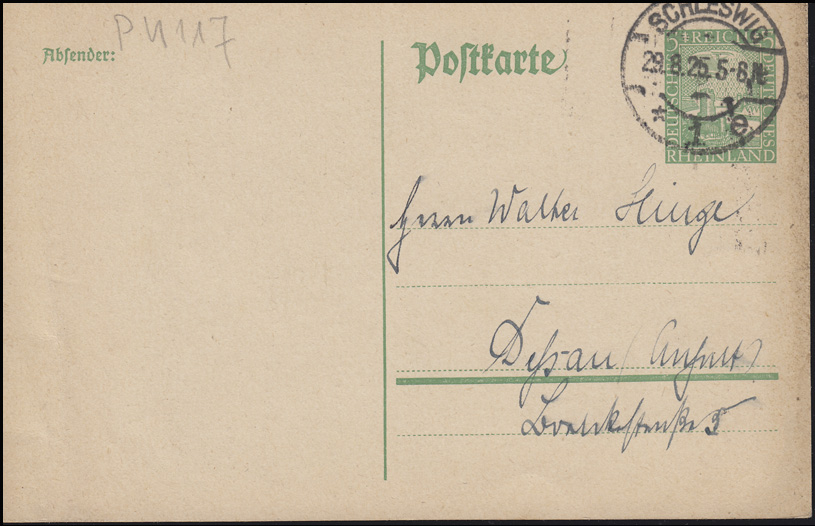 PU117
Absender:
Postkarte
SCHLESWIG
29.8.25.5-6N.
* 1 e
5 REICH 5
DEUTSCHES
RHEINLAND
Herrn Walter Hinge
Dessau (Anhalt)
5